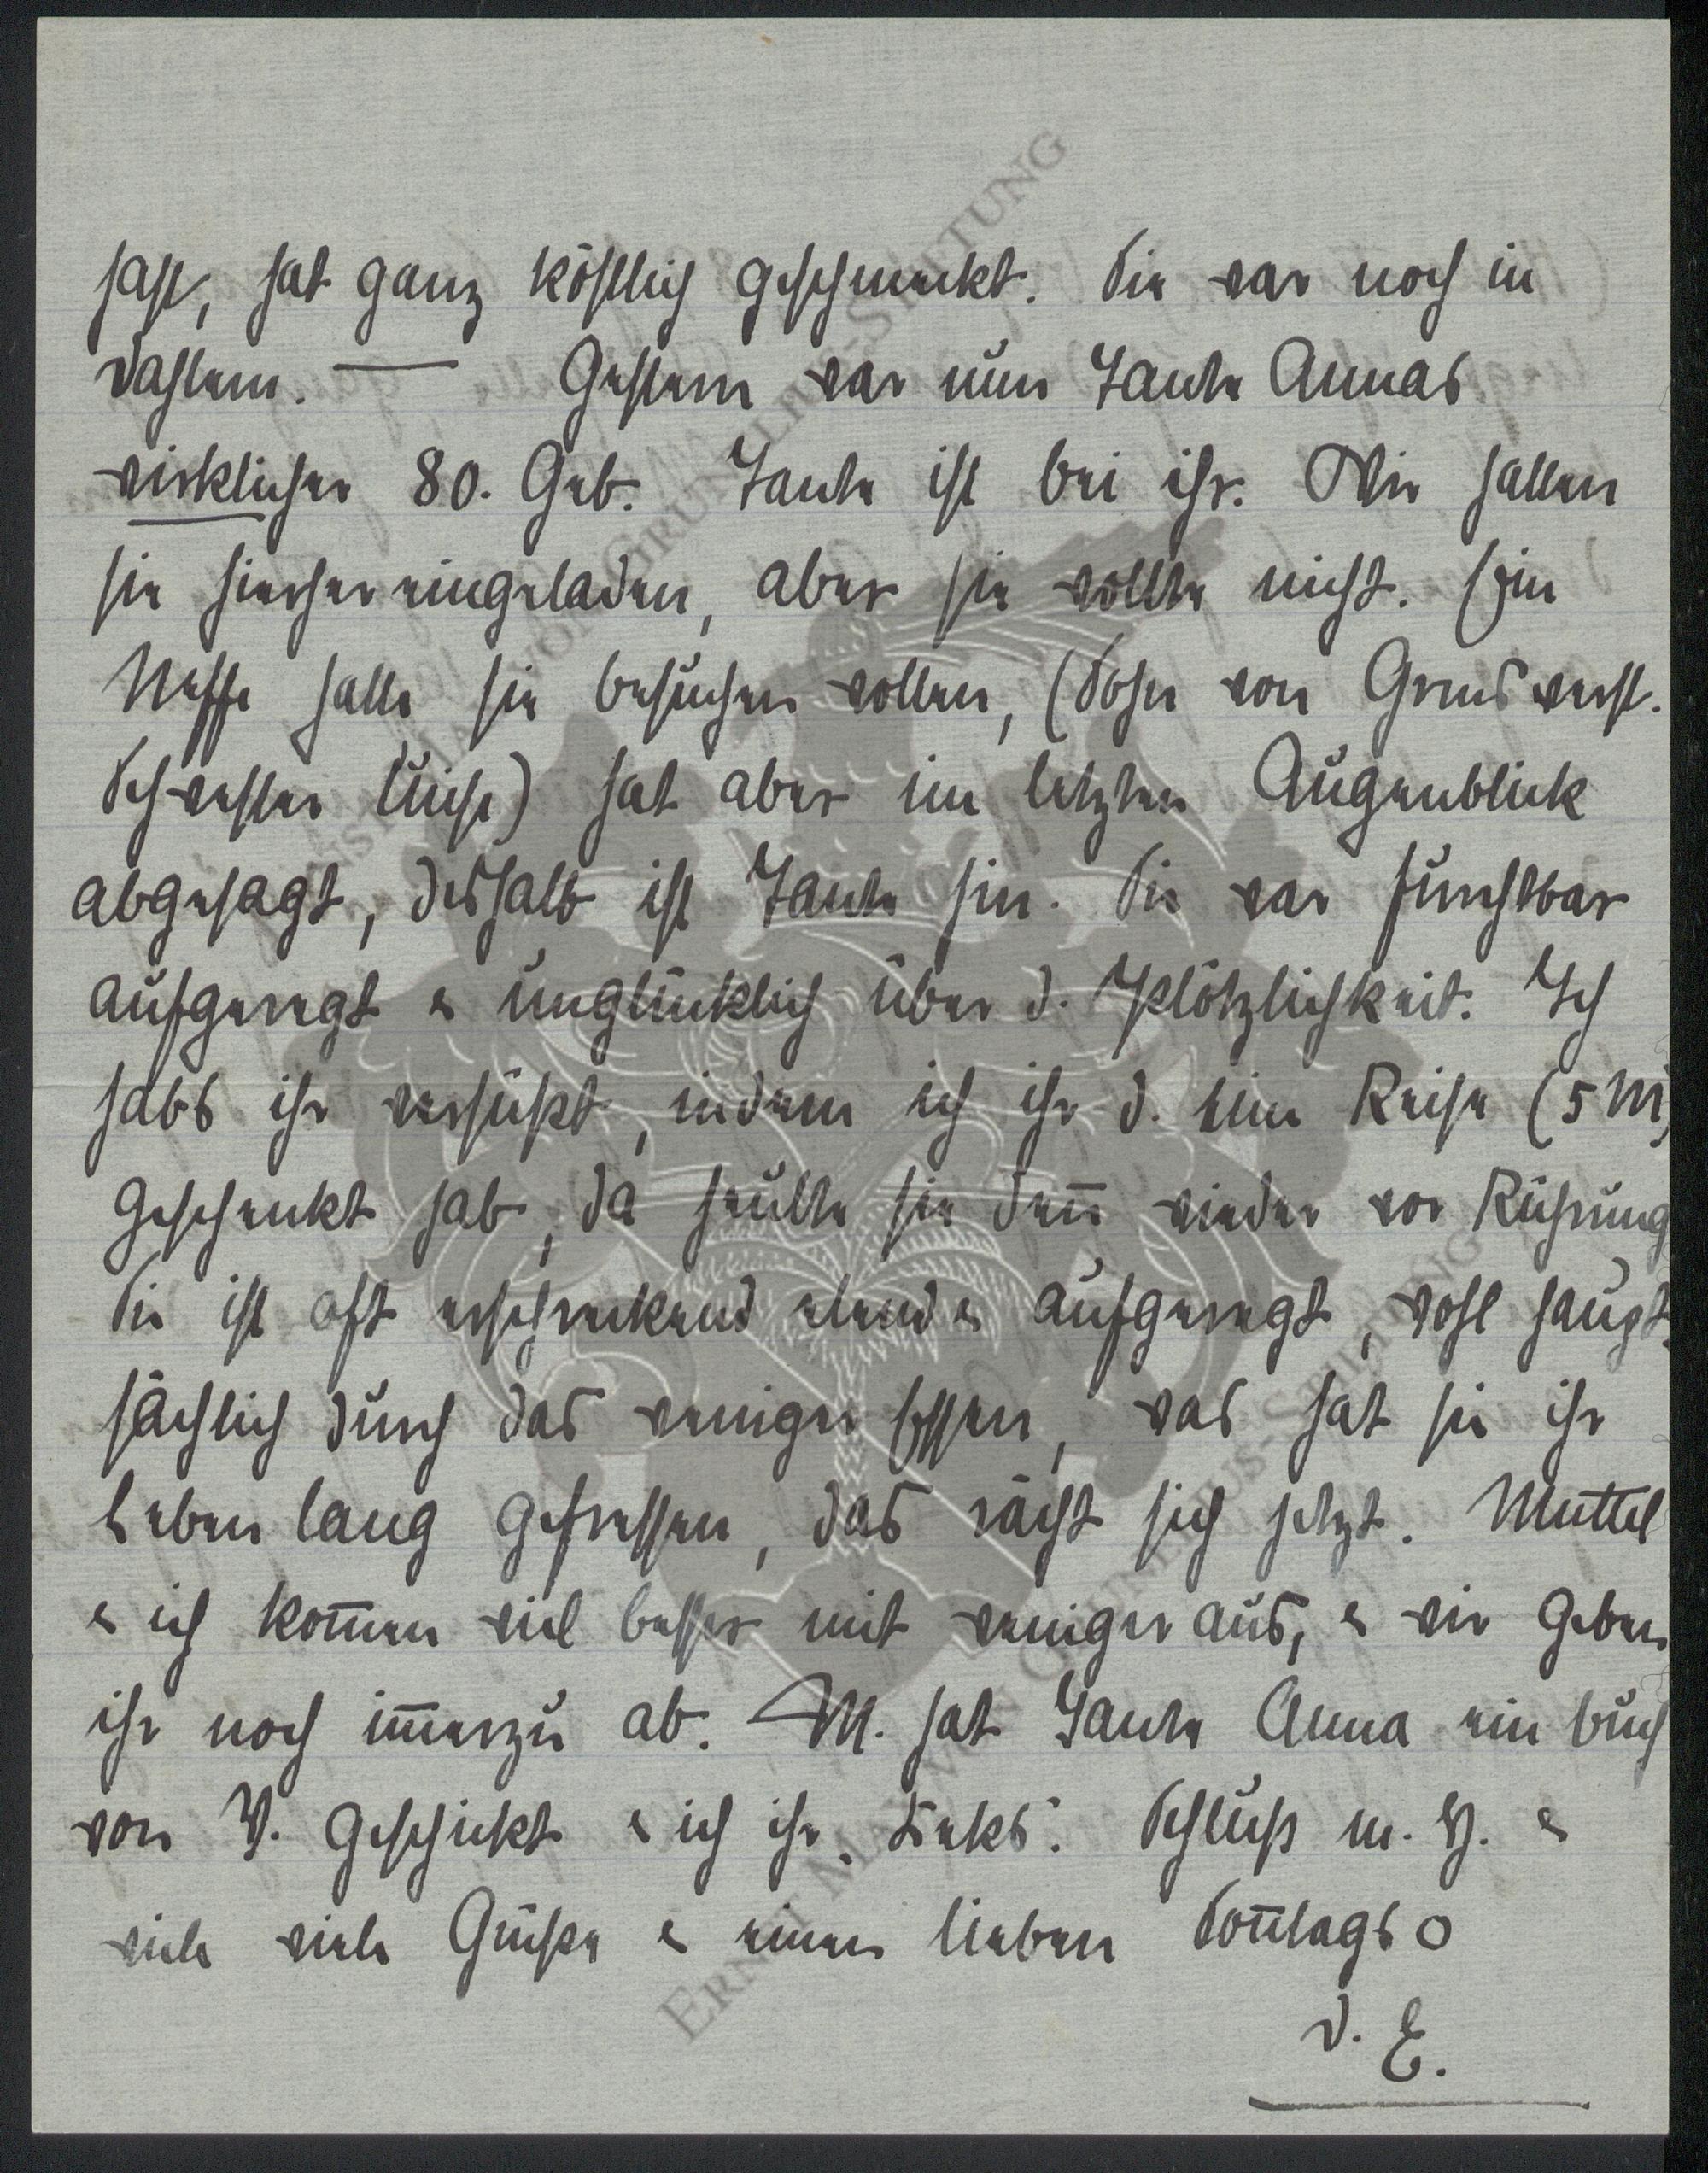 hast, hat ganz köstlich geschmeckt. Sie war noch in
Dahlem. — Gestern war nun Tante Annas
wirklicher 80. Geb. Tante ist bei ihr. Wir hatten
sie hierher eingeladen, aber sie wollte nicht. Ein
Neffe hatte sie besuchen wollen, (Sohn von verst.
Schwester Luise) hat aber im letzten Augenblick
abgesagt, deshalb ist Tante hin. Sie war furchtbar
aufgeregt & unglücklich über d. Plötzlichkeit. Ich
habs ihr versüßt, indem ich ihr d. Reise (5 M)
geschenkt hab, da heulte sie denn̅ wieder vor Rührung
Sie ist oft erschreckend elend & aufgeregt, wohl haupt
sächlich durch das weniger Essen, was hat sie ihr
Leben lang gefressen, das rächt sich jetzt. Muttel
& ich kom̅en viel besser mit weniger aus, & wir geben
ihr noch im̅erzu ab. M. hat Tante Anna ein Buch
von V. geschickt & ich ihr „Keks“. Schluß m. H. &
viele viele Grüße & einen lieben Son̅tags O
D. E.
ERNST MARLIER VON GRUNELIUS-STIFTUNG